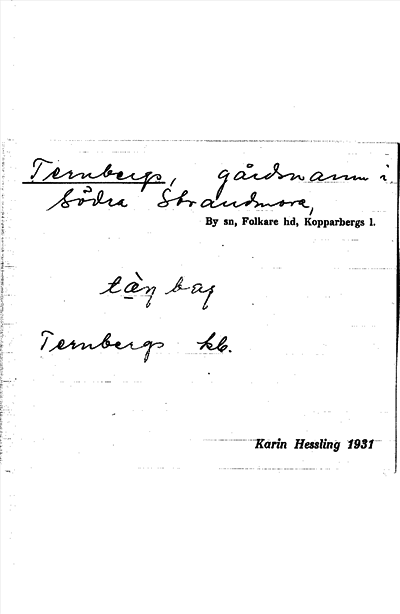 Ternbergs, gårdsnamn i
Södra Strandmora,
By sn, Folkare hd, Kopparbergs l.
Ternbergs kb.
Karin Hessling 1931